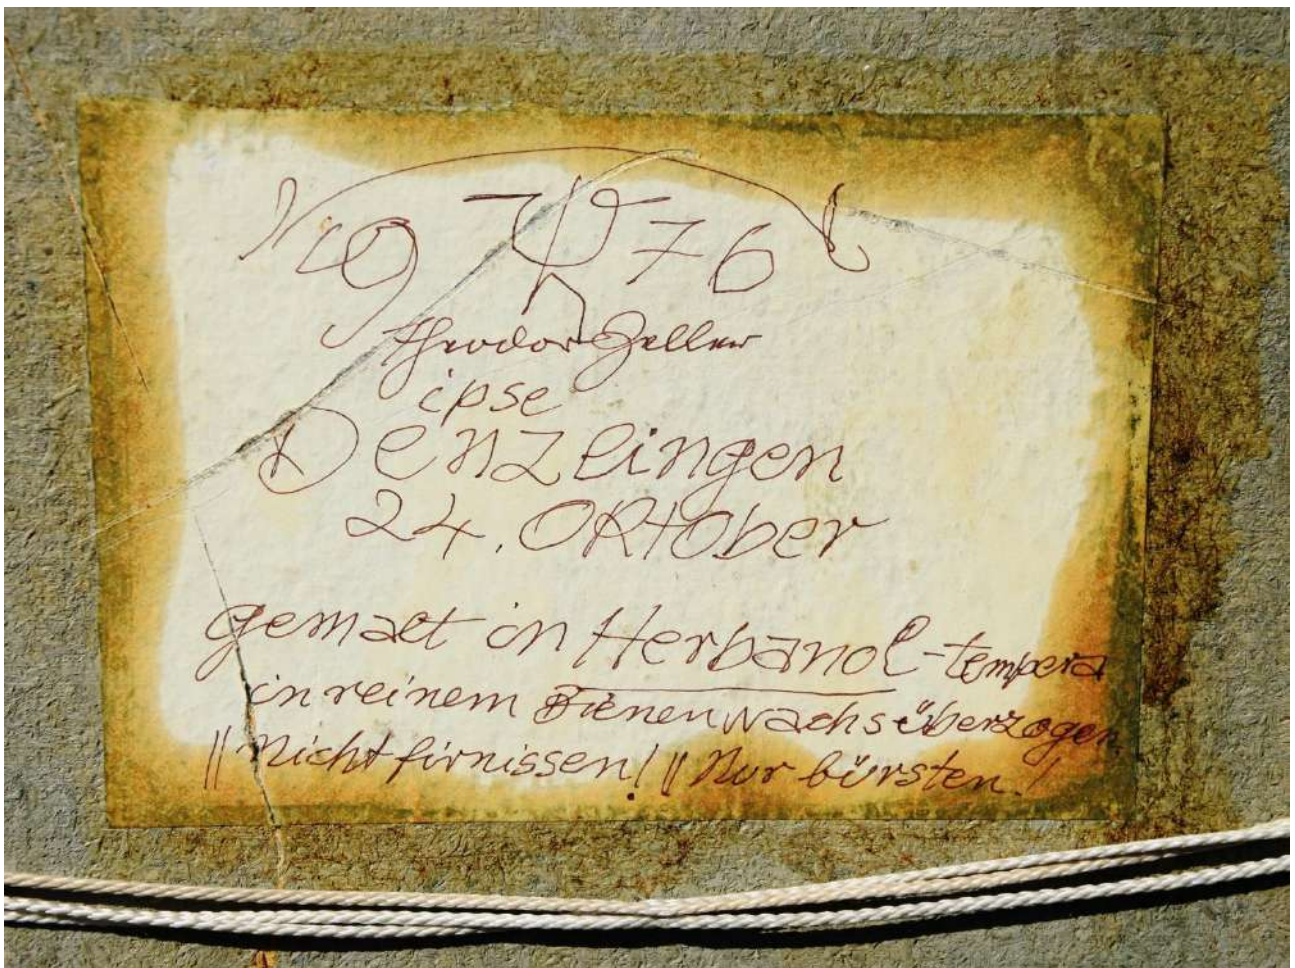 1976
Theodor Zeller
ipse
Denzlingen
24. Oktober
gemalt in Herbanol-tempera
in reinem Bienenwachs überzogen
|| Nicht firnissen! || Nur bürsten!